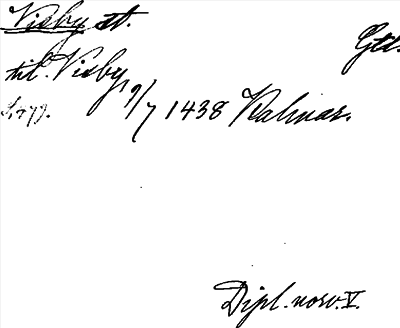 Visby st.
Gtl.
til Visby
19/7 1438 Kalmar.
Dipl. norv. V.